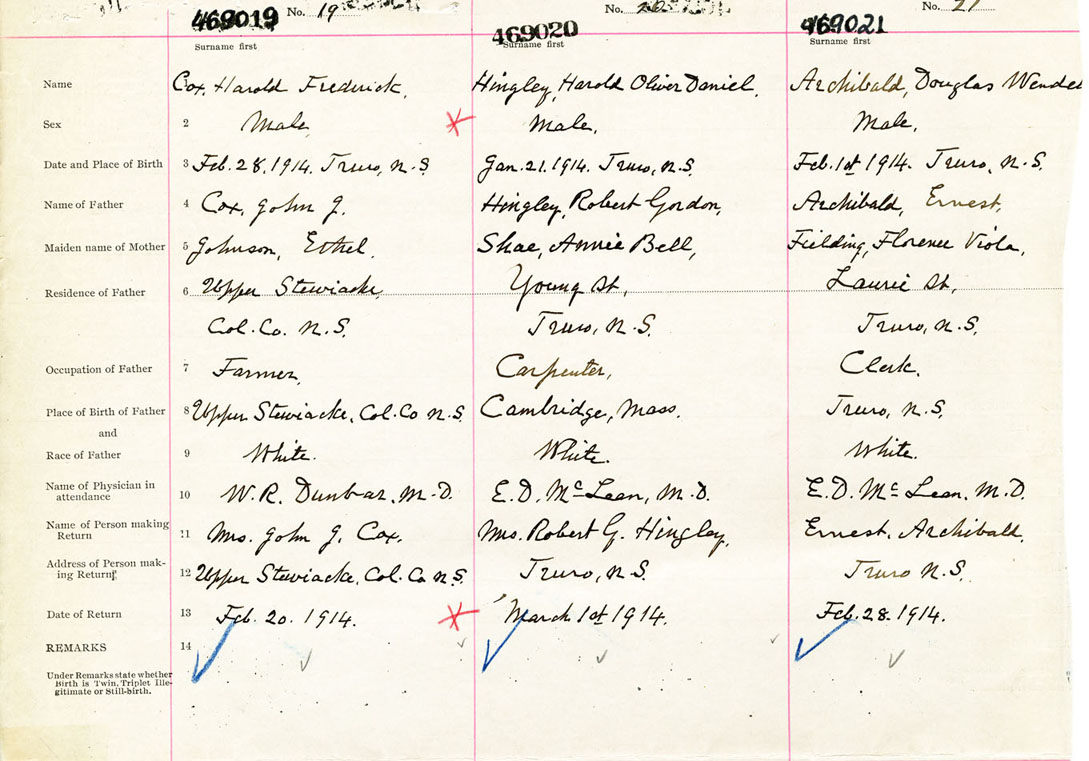 469019 No. 19 469020 No. 20 469021 No. 21
Surname first Surname first Surname first
Name Cox, Harold Frederick, Hingley, Harold Oliver Daniel, Archibald, Douglas Wendel
Sex 2 Male, Male, Male,
Date and Place of Birth 3 Feb. 28. 1914. Truro, N.S. Jan. 21. 1914. Truro, N.S. Feb. 1st 1914. Truro, N.S.
Name of Father 4 Cox, John J. Hingley, Robert Gordon, Archibald, Ernest,
Maiden name of Mother 5 Johnson, Ethel, Shae, Annie Bell, Fielding, Florence Viola,
Residence of Father 6 Upper Stewiacke, Young St, Laurie St,
Col. Co. N.S. Truro, N.S. Truro, N.S.
Occupation of Father 7 Farmer, Carpenter, Clerk.
Place of Birth of Father 8 Upper Stewiacke, Col. Co N.S. Cambridge, Mass. Truro, N.S.
and
Race of Father 9 White. White. White.
Name of Physician in
attendance 10 W.R. Dunbar, M.D. E.D. McLean, M.D. E.D. McLean, M.D.
Name of Person making
Return 11 Mrs. John J. Cox. Mrs. Robert G. Hingley, Ernest, Archibald,
Address of Person mak-
ing Return 12 Upper Stewiacke, Col. Co N.S. Truro, N.S. Truro N.S.
Date of Return 13 Feb. 20. 1914. March 1st 1914. Feb. 28. 1914.
REMARKS 14
Under Remarks state whether
Birth is Twin, Triplet Ille-
gitimate or Still-birth.